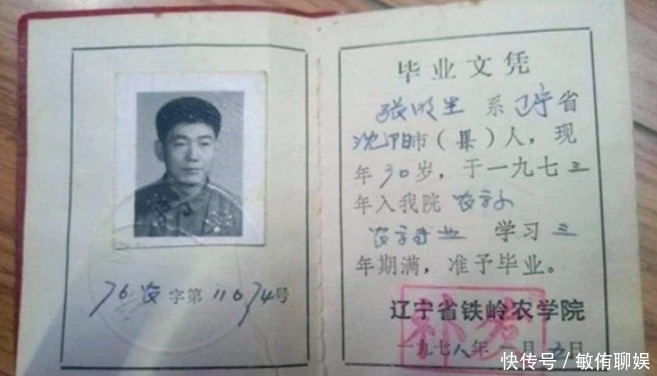 76农字第11674号
毕业文凭
张明生 系辽宁省
沈阳市(县)人,现
年30岁,于一九七三
年入我院
学习三
年期满,准予毕业。
辽宁省铁岭农学院
补发
一九七八年一月
快传号/敏侑聊娱